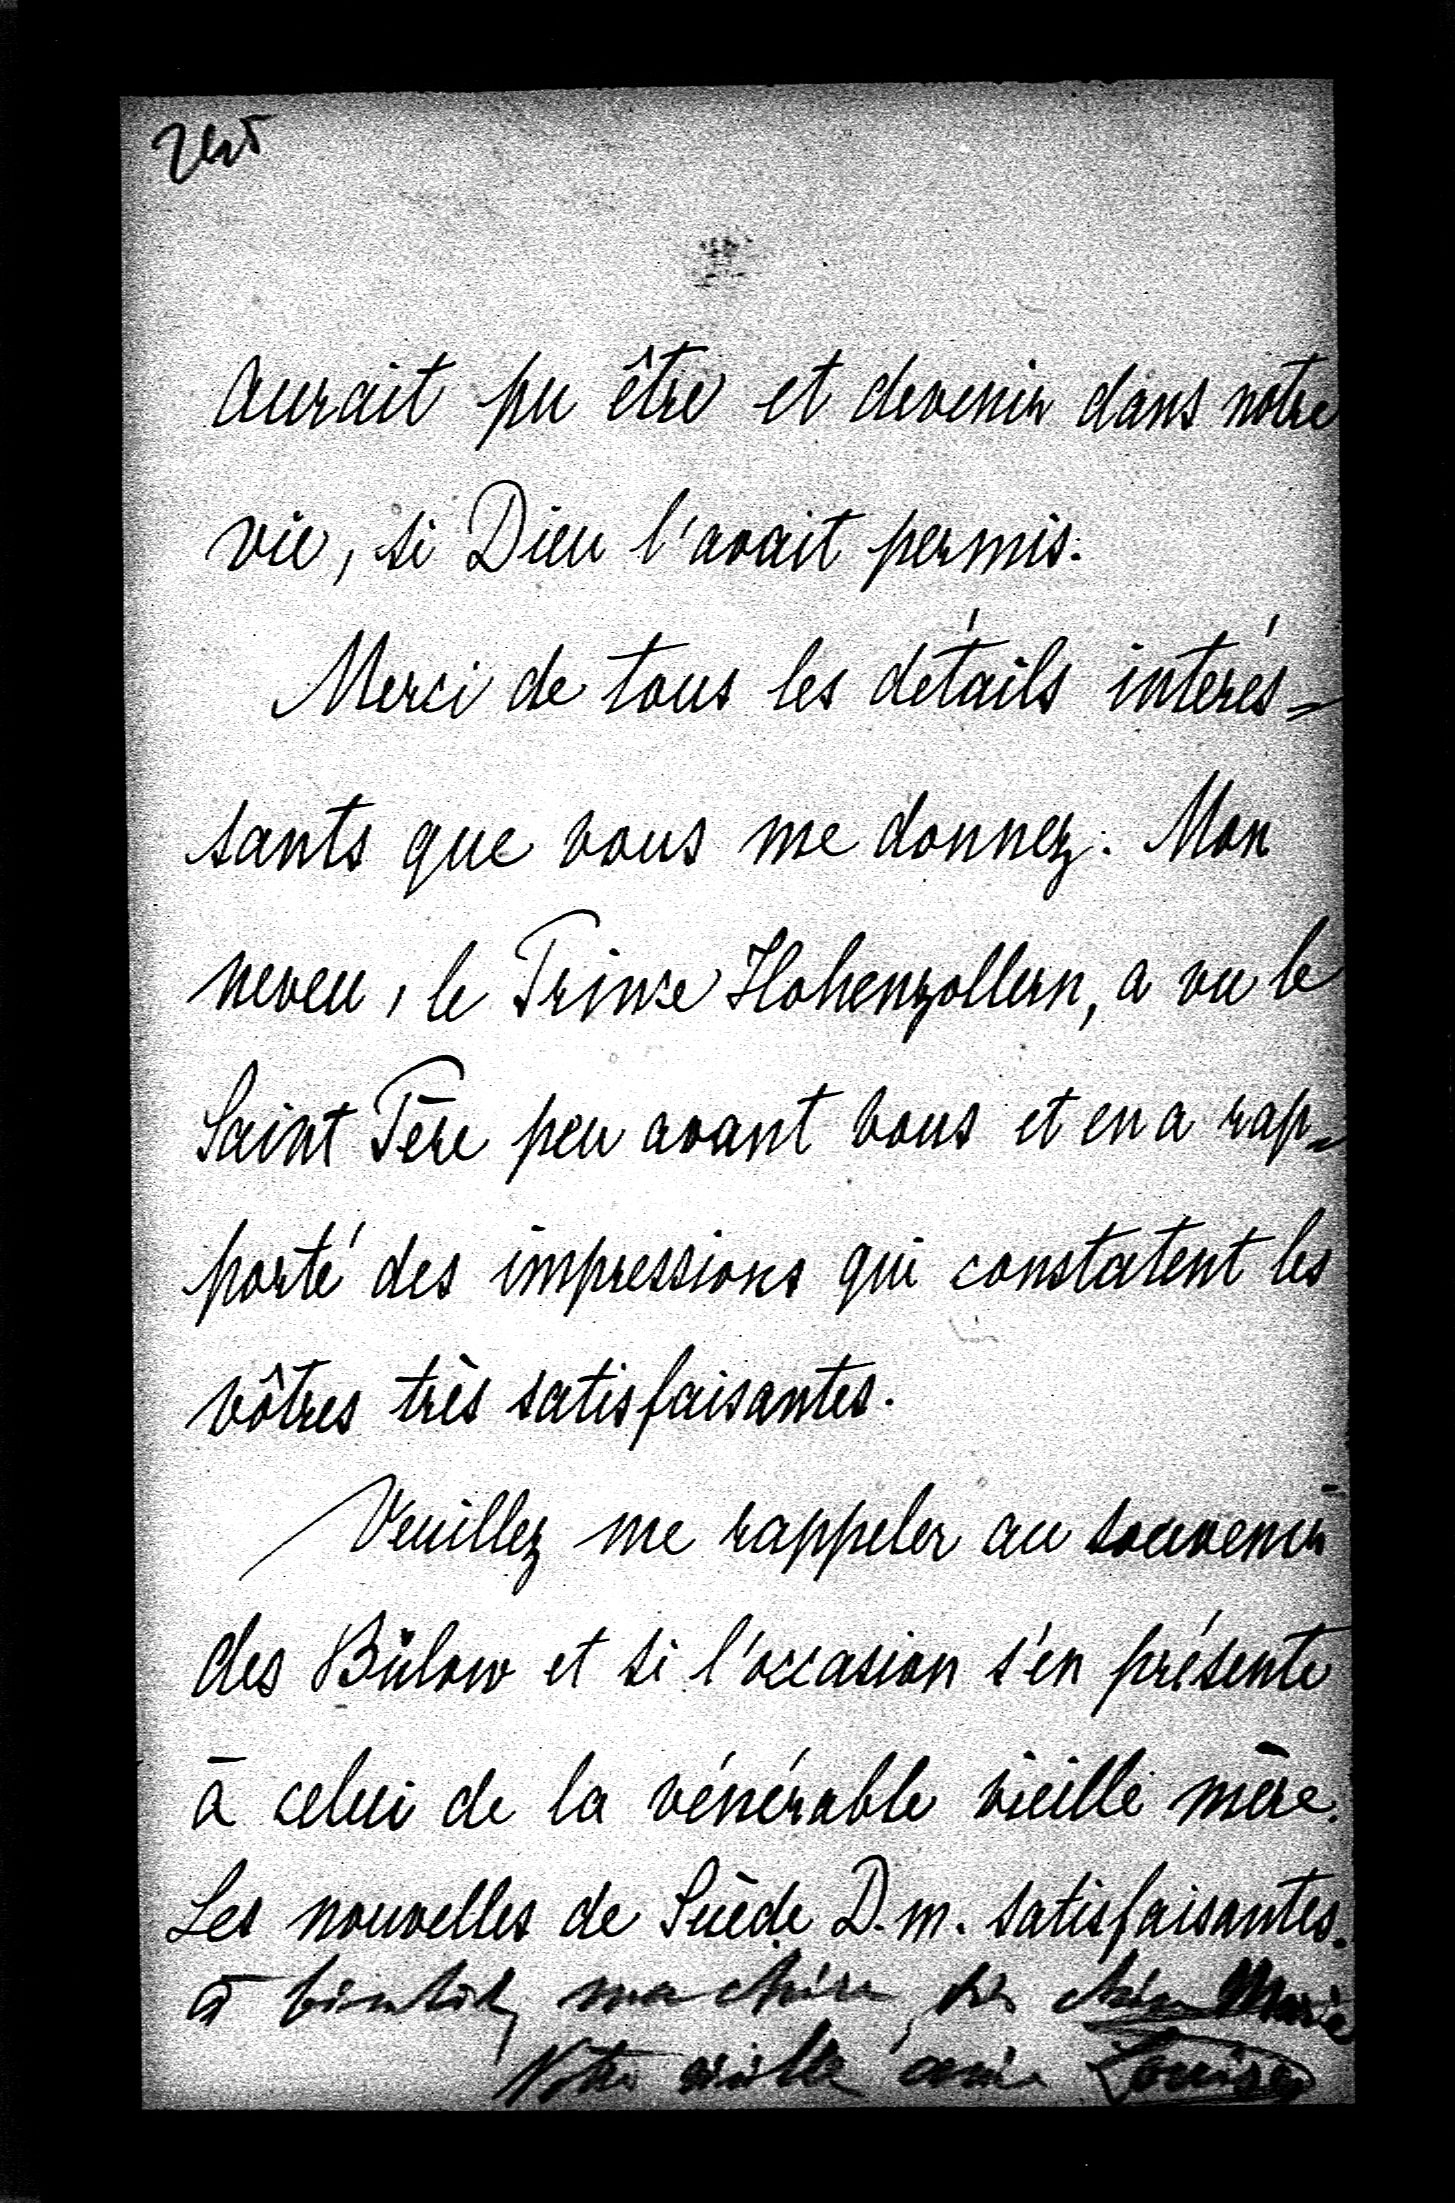 aurait pu être et devenir dans notre
vie, si Dieu l'avait permis.
Merci de tous les détails intérés=
sants que vous me donnez. Mon
neveu, le Prince Hohenzollern, a vu le
Saint Père peu avant vous et en a rap=
porté des impressions qui constatent les
vôtres très satisfaisantes.
Veuillez me rappeler au souvenir
des Bülow et si l'occasion s'en présente
à celui de la vénérable vieille mère.
Les nouvelles de Suède D. m. satisfaisantes.
à bientôt, ma chère, très chère Marie
Votre vieille amie Louise